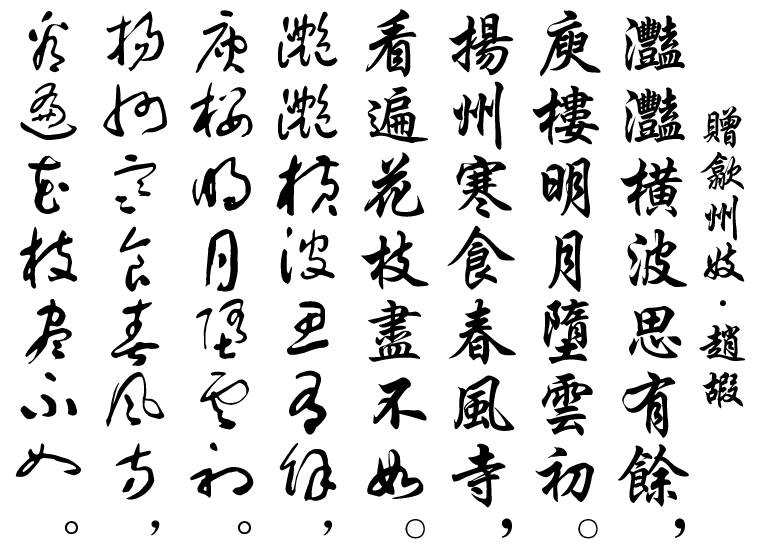 贈歙州妓・趙嘏
灩灩橫波思有餘，
庾樓明月墮雲初。
揚州寒食春風寺，
看遍花枝盡不如。
灩灩橫波思有餘，
庾樓明月墮雲初。
揚州寒食春風寺，
看遍花枝盡不如。